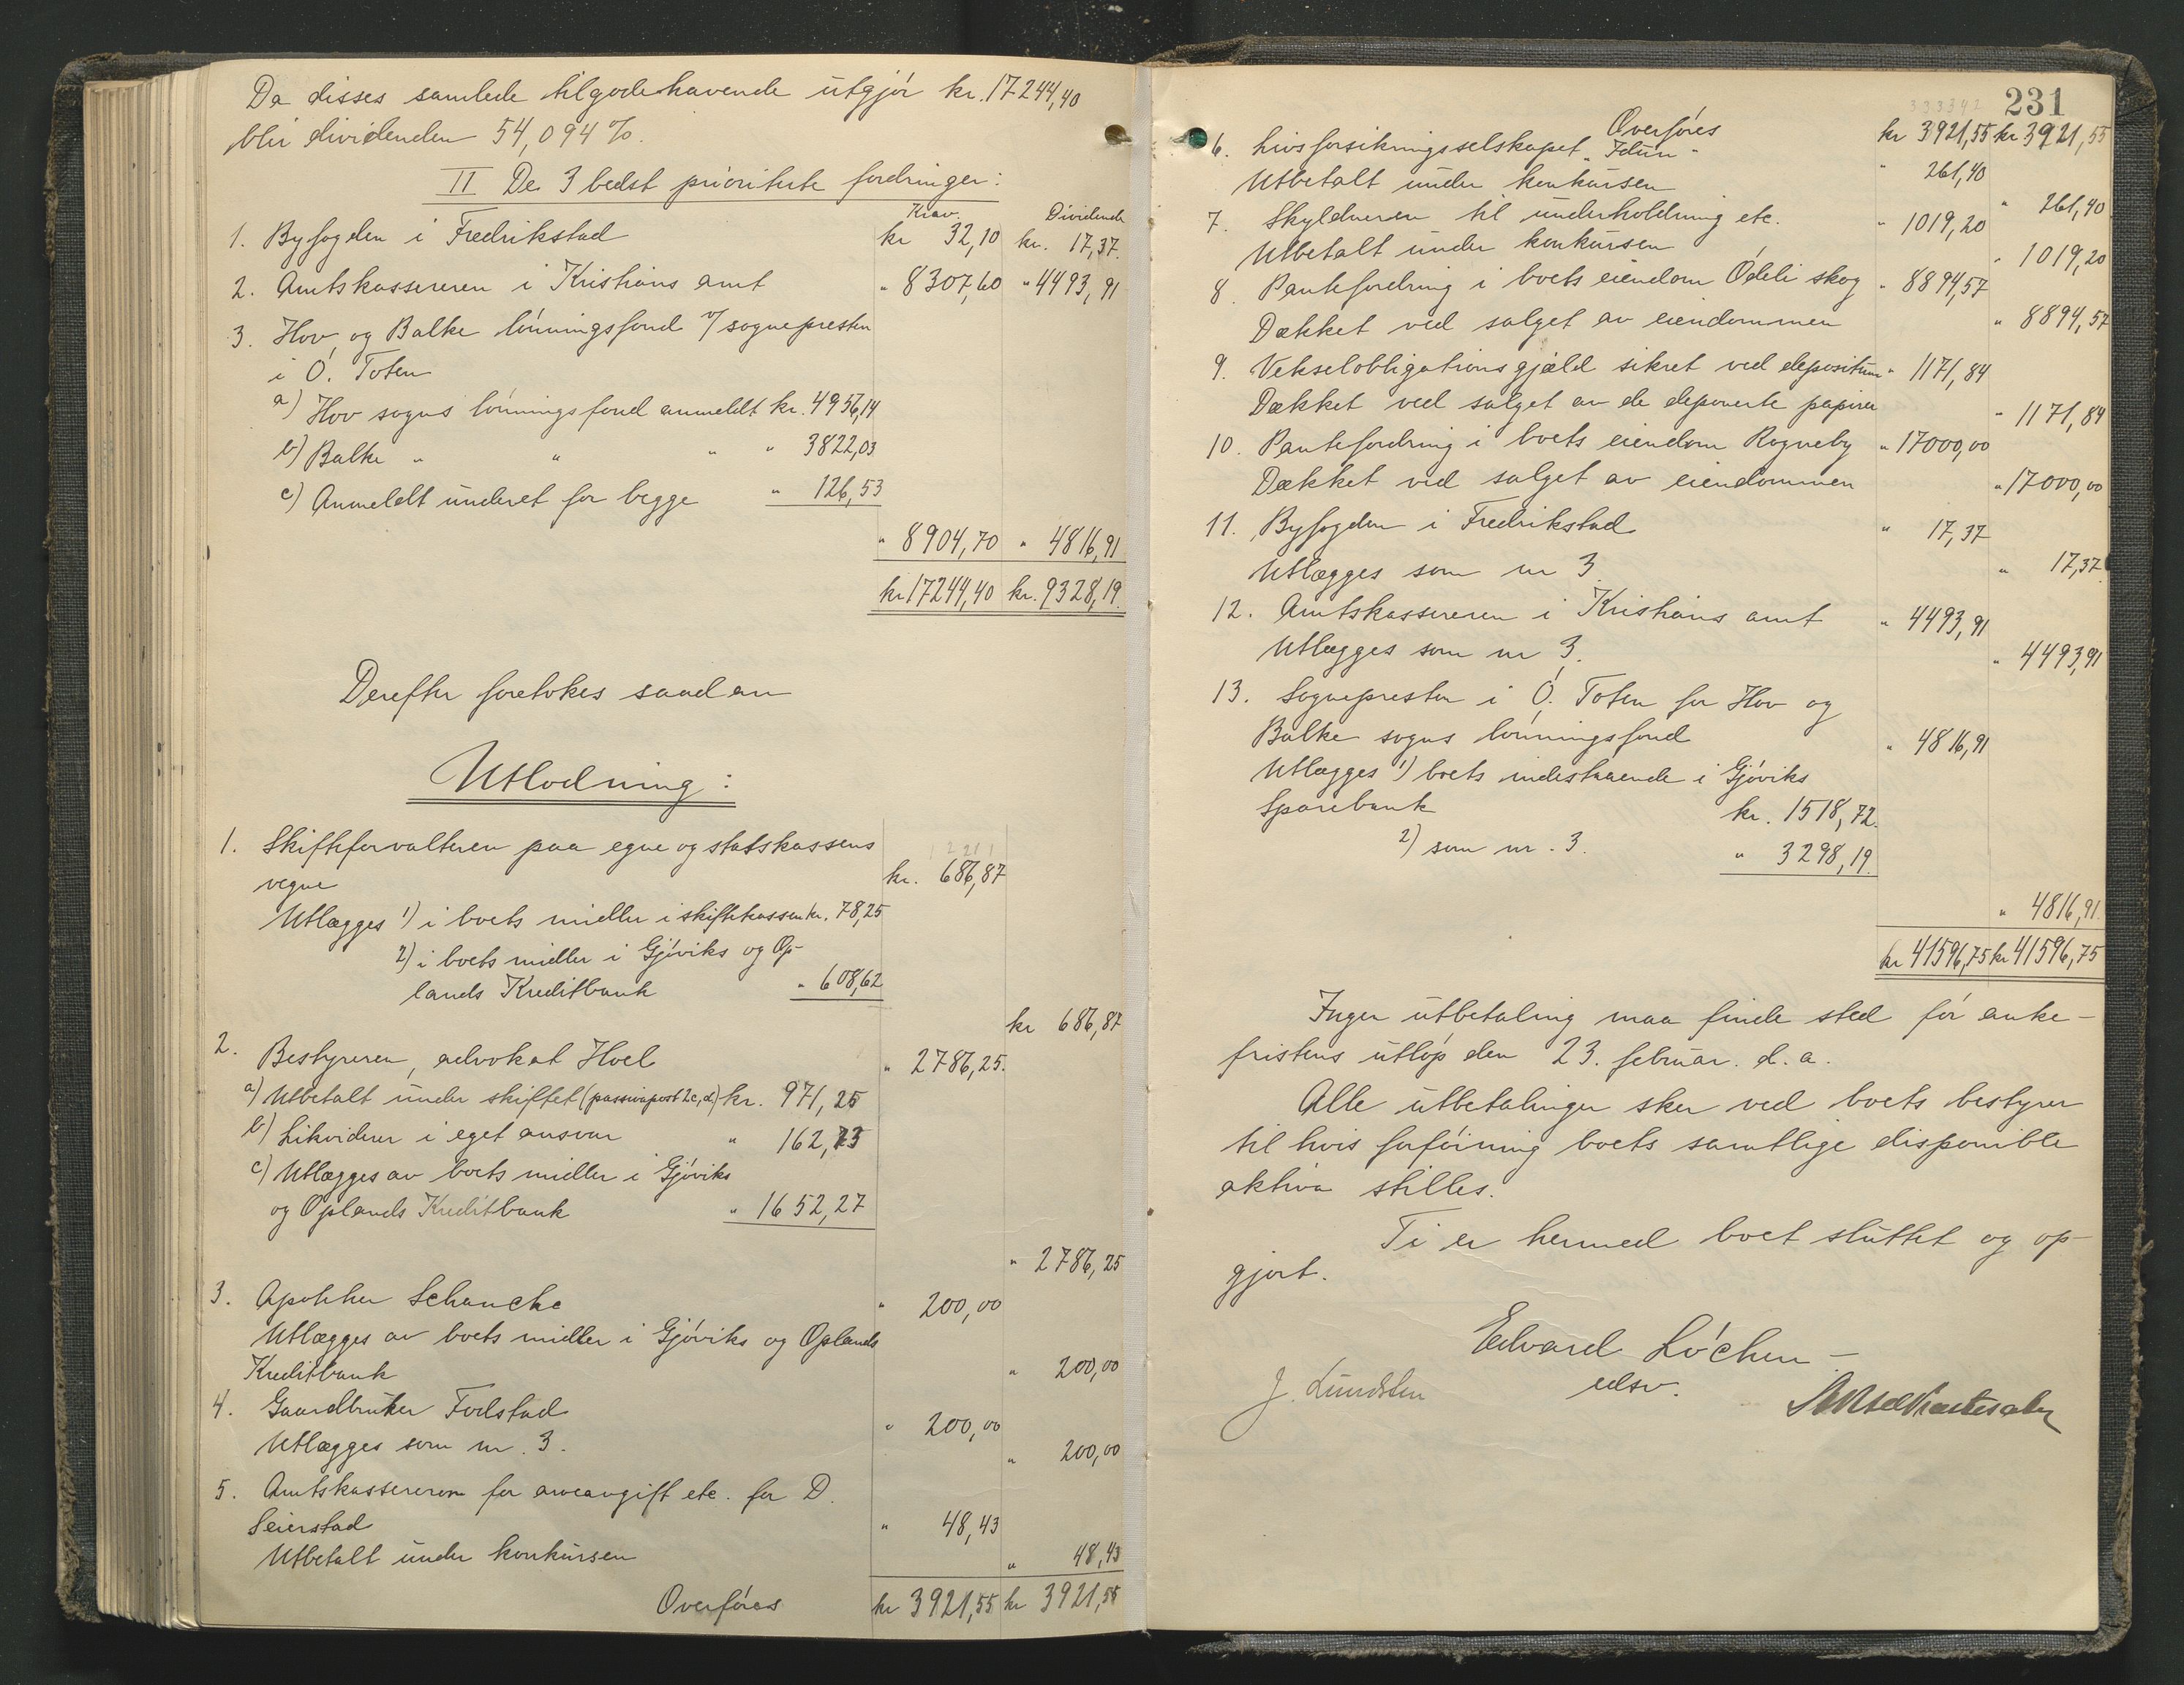 Da disses samlede tilgodehavende utgjør kr. 17244,40
blir dividenden 54,094 %.
II De 3 bedst prioriterte fordringer:
Krav. Dividende
1. Byfogden i Fredrikstad kr 32,10 kr. 17,37.
2. Amtskassereren i Kristians amt " 8307,60 " 4493,91
3. Hov og Balke lønningsfond v/ sognepresten
i Ø. Toten
a) Hov sogns lønningsfond anmeldt kr. 4956,14
b) Balke " " " " 3822,03
c) Anmeldt underet for begge " 126,53
" 8904,70 " 4816,91
kr 17244,40 kr. 9328,19.
Derefter foretokes saadan
Utlodning:
1. Skifteforvalteren paa egne og statskassens
vegne kr. 686,87
Utlægges 1) i boets midler i skiftekassen kr. 78,25
2) i boets midler i Gjøviks og Op-
lands Kreditbank " 608,62
kr 686,87
2. Bestyreren, advokat Hoel " 2786,25.
a) Utbetalt under skiftet (passivapost 2c,d) kr. 971,25
b) Likviderer i eget ansvar " 162,73
c) Utlægges av boets midler i Gjøviks
og Oplands Kreditbank " 1652,27
" 2786,25
3. Apotheker Schancke " 200,00
Utlægges av boets midler i Gjøviks og Oplands
Kreditbank " 200,00
4. Gaardbruker Fodstad " 200,00
Utlægges som nr. 3. " 200,00
5. Amtskassereren for arveavgift etc. for D.
Seierstad " 48,43
Utbetalt under konkursen " 48,43
Overføres kr 3921,55 kr 3921,55
231
Overføres kr 3921,55 kr 3921,55
6. Livsforsikringsselskapet "Idun" " 261,40
Utbetalt under konkursen " 261,40
7. Skyldneren til underholdning etc. " 1019,20
Utbetalt under konkursen " 1019,20
8. Pantefordring i boets eiendom Ødeli skog " 8894,57
Dækket ved salget av eiendommen " 8894,57
9. Vekselobligationsgjæld sikret ved depositum " 1171,84
Dækket ved salget av de deponerte papirer " 1171,84
10. Pantefordring i boets eiendom Rogneby " 17000,00
Dækket ved salget av eiendommen " 17000,00
11. Byfogden i Fredrikstad " 17,37
Utlægges som nr 3. " 17,37
12. Amtskassereren i Kristians amt " 4493,91
Utlægges som nr 3. " 4493,91
13. Sognepresten i Ø. Toten for Hov og
Balke sogns lønningsfond " 4816,91
Utlægges 1) boets indestaaende i Gjøviks
Sparebank kr. 1518,72.
2) som nr. 3. " 3298,19.
" 4816,91.
kr 41596,75 kr 41596,75
Ingen utbetaling maa finde sted før anke-
fristens utløp den 23. februar. d.a.
Alle utbetalinger sker ved boets bestyrer
til hvis forføining boets samtlige disponible
aktiva stilles.
Ti er hermed boet sluttet og op-
gjort.
Edvard Løchen
J. Lundsten edsv.